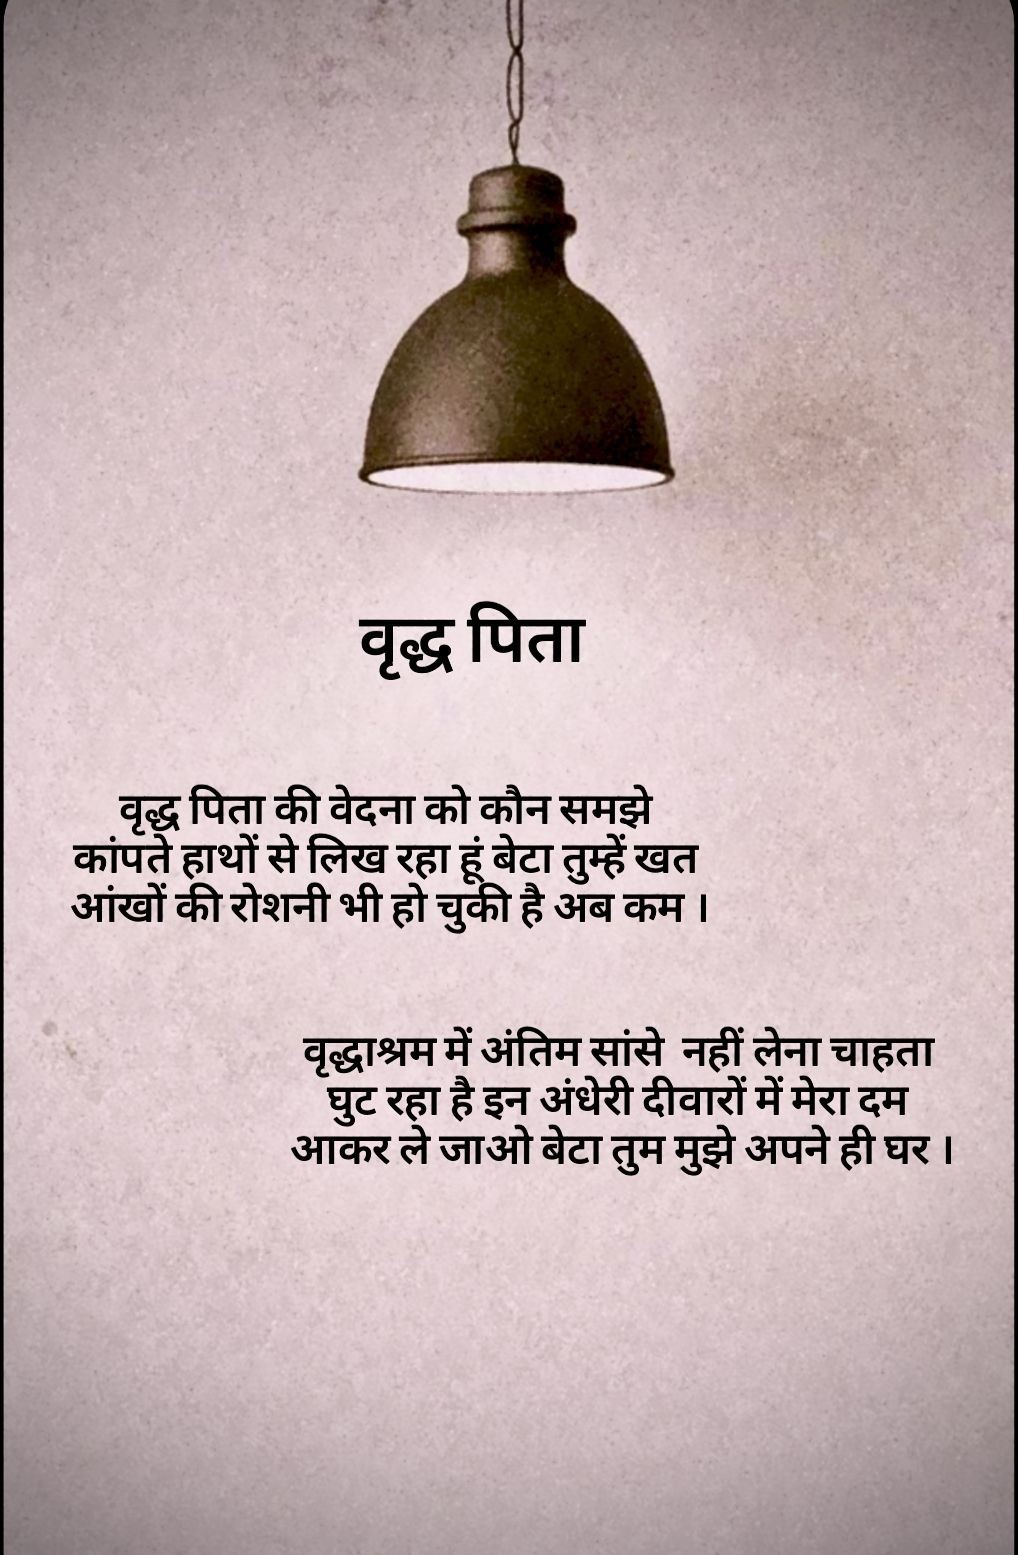 वृद्ध पिता
वृद्ध पिता की वेदना को कौन समझे
कांपते हाथों से लिख रहा हूं बेटा तुम्हें खत
आंखों की रोशनी भी हो चुकी है अब कम ।
वृद्धाश्रम में अंतिम सांसे  नहीं लेना चाहता
घुट रहा है इन अंधेरी दीवारों में मेरा दम
आकर ले जाओ बेटा तुम मुझे अपने ही घर ।